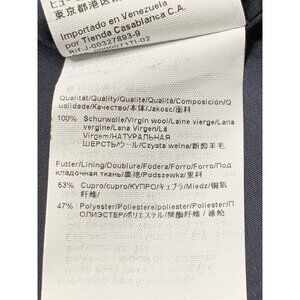 東京都港区
Importado en Venezuela
por Tienda Casablanca C.A.
Rif.J-00327893-9
Qualität/Quality/Qualité/Qualità/Composición/Q
ualidade/Качество/本体/Jakosc/面料
100% Schurwolle/Virgin wool/Laine vierge/Lana
vergine/Lana Virgen/Lã
Virgem/НАТУРАЛЬНАЯ
ШЕРСТЬ/ウール/Czysta welna/新剪羊毛
Futter/Lining/Doublure/Fodera/Forro/Forro/Под
кладочная ткань/裏地/Podszewka/里料
53% Cupro/cupro/КУПРО/キュプラ/Miedz/铜氨
纤维/
47% Polyester/Polyester/poliestere/Poliester/П
ОЛИЭСТЕР/ポリエステル/聚酯纤维/涤纶